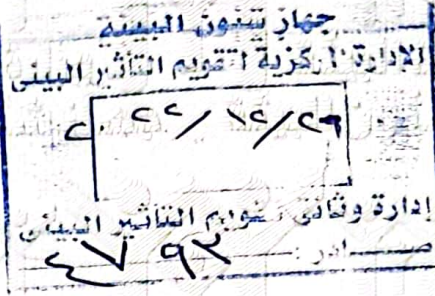 جهاز شئون البيئة
الإدارة المركزية لتقويم التأثير البيئى
٢٠٢٢/١٢/٢٩
إدارة وثائق تقويم التأثير البيئى
صادر : ٤٧٩٣